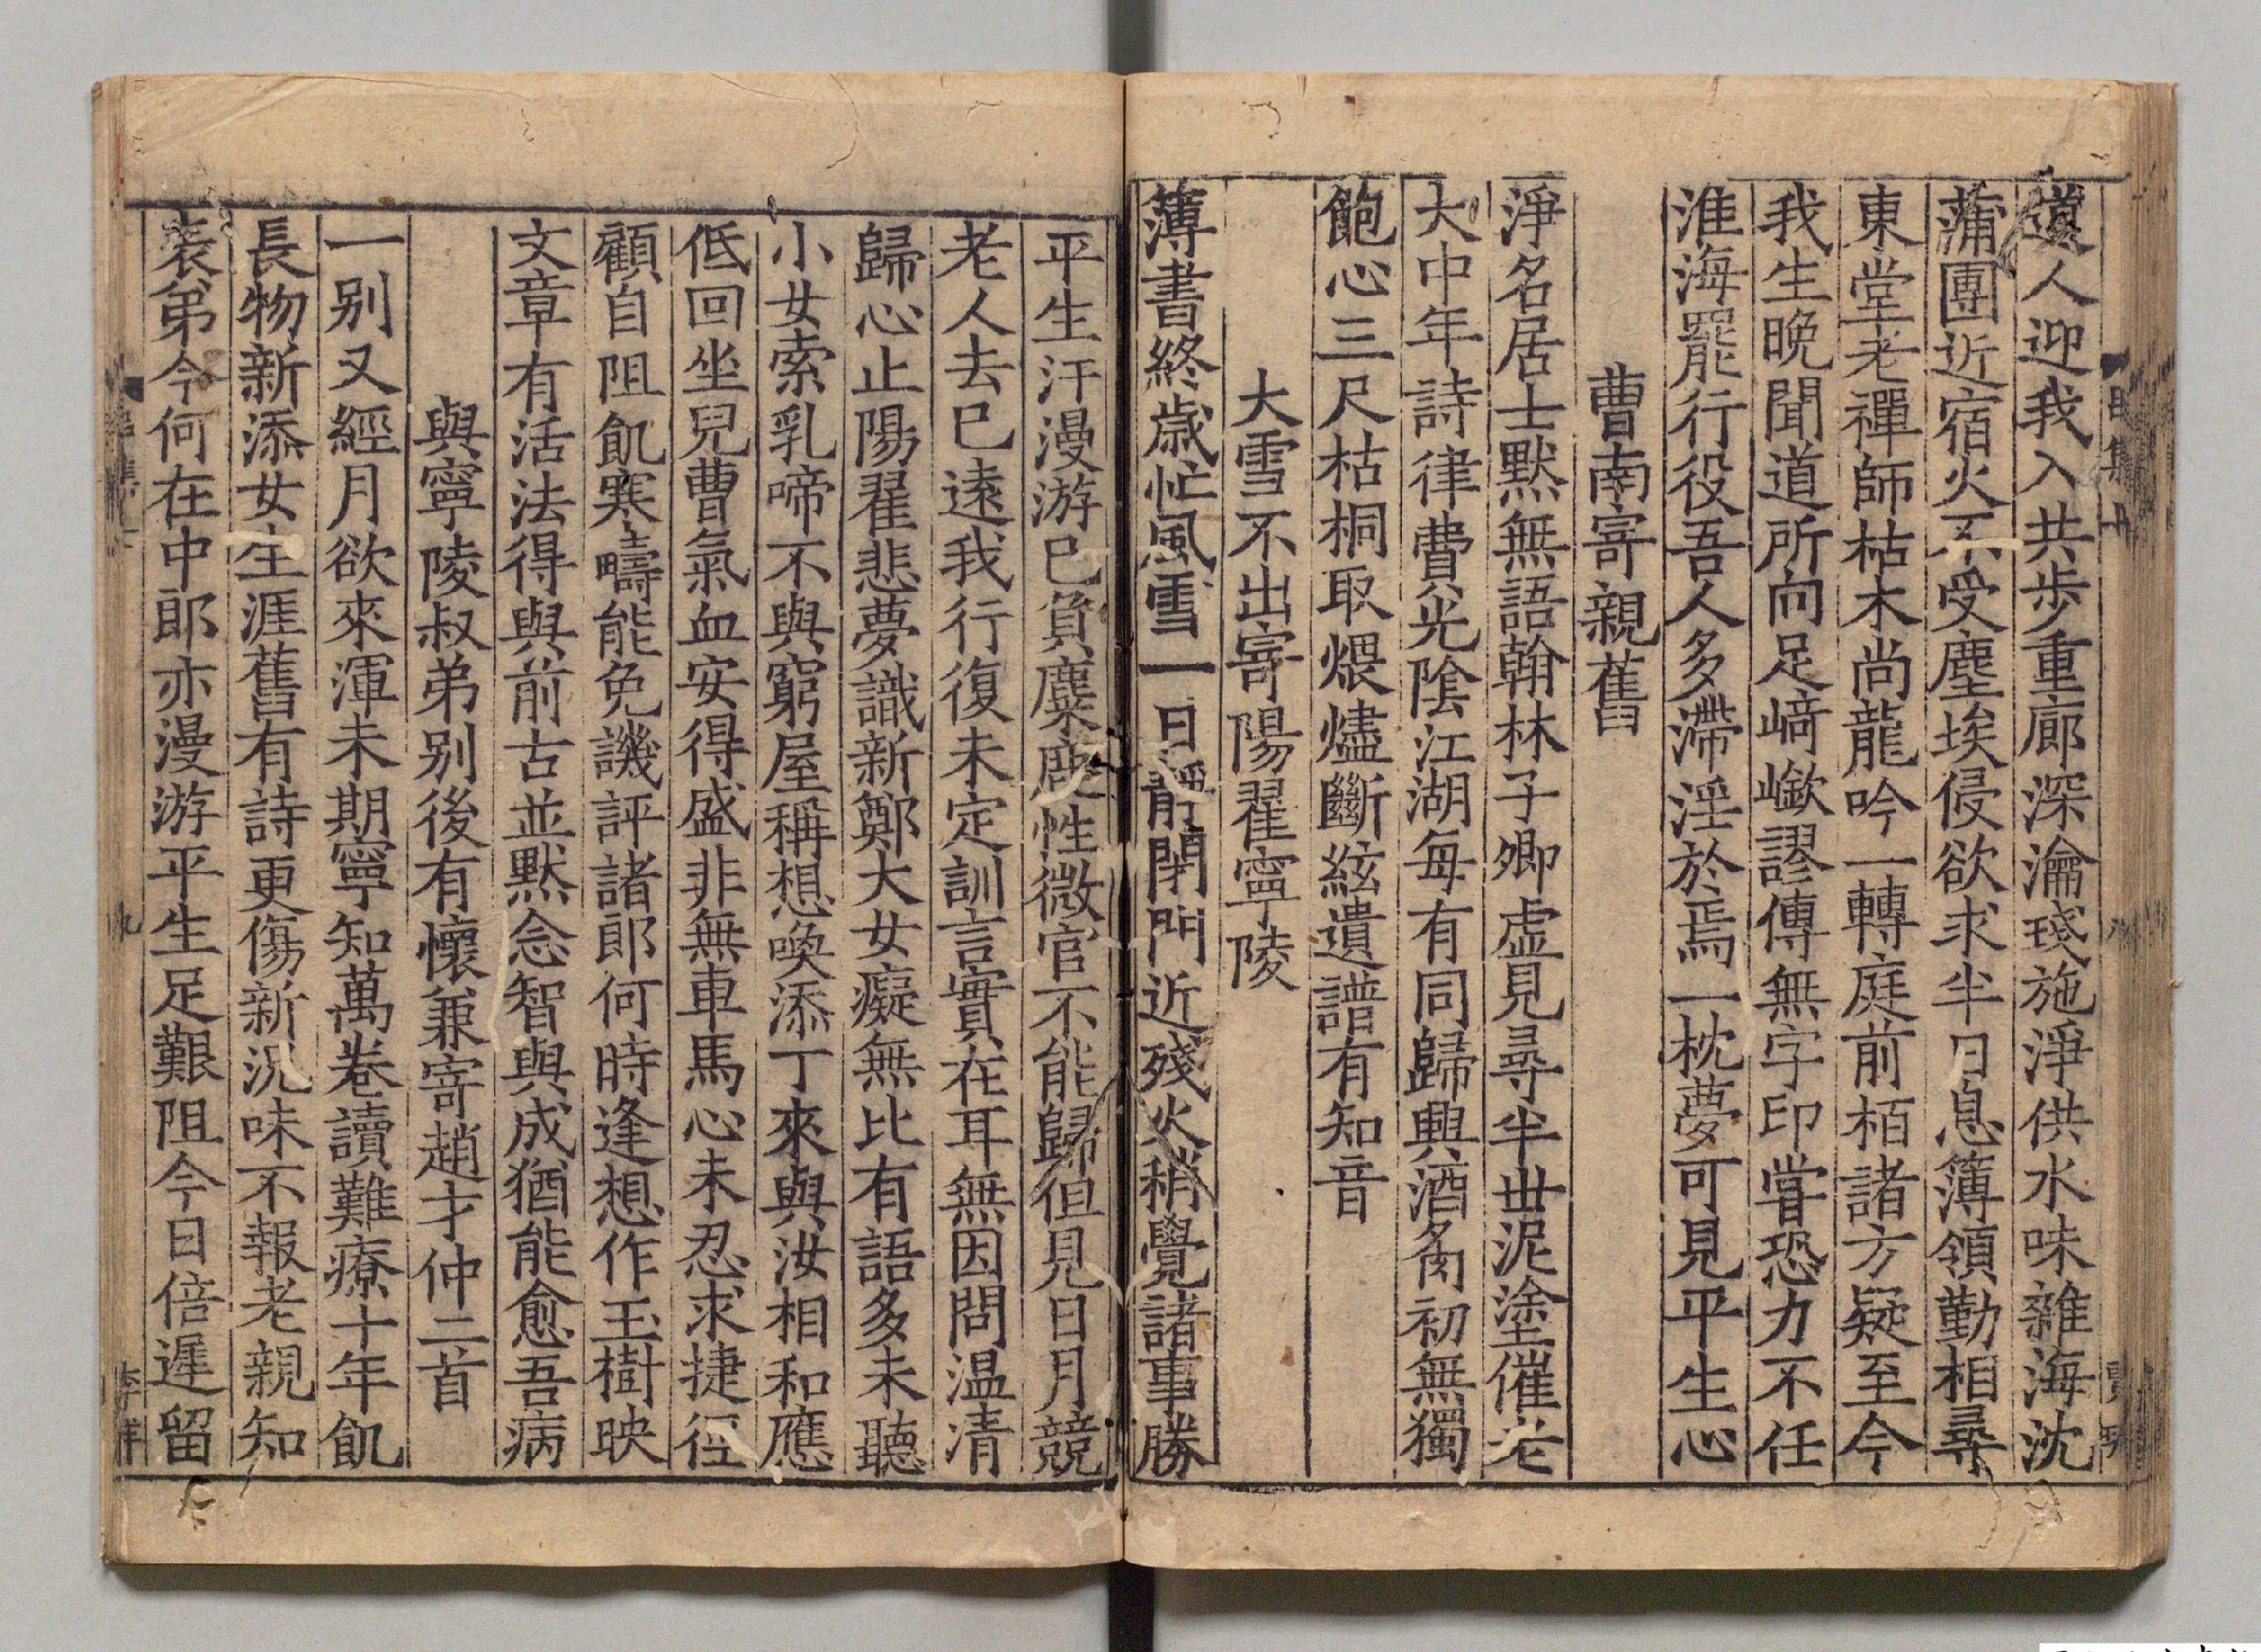 道人迎我入共步重廊深瀹琖施淨供水味雜海沈
蒲團近宿火不受塵埃侵欲求半日息簿領勤相尋
東堂老禪師枯木尚龍吟一轉庭前栢諸方疑至今
我生晚聞道所向足﨑嶔謬傳無字印嘗恐力不任
淮海罷行役吾人多滯淫於焉一枕夢可見平生心
曹南寄親舊
淨名居士默無語翰林子卿虛見尋半丗泥塗催老
大中年詩律費光陰江湖每有同歸興酒肴初無獨
飽心三尺枯桐取煨燼斷絃遺譜有知音
大雪不出寄陽翟寧陵
薄書終歲忙風雪一日靜閉門近殘火稍覺諸事勝
平生汗漫游已負麋鹿性微官不能歸但見日月競
老人去已遠我行復未定訓言實在耳無因問温清
歸心止陽翟悲夢識新鄭大女癡無比有語多未聽
小女索乳啼不與窮屋稱想喚添丁來與汝相和應
低回坐兒曹氣血安得盛非無車馬心未忍求捷徑
顧自阻飢寒疇能免譏評諸郎何時逢想作玉樹映
文章有活法得與前古並默念智與成猶能愈吾病
與寧陵叔弟别後有懷兼寄趙才仲二首
一别又經月欲來渾未期寧知萬卷讀難療十年飢
長物新添女生涯舊有詩更傷新況味不報老親知
袁弟今何在中郎亦漫游平生足艱阻今日倍遲留
九